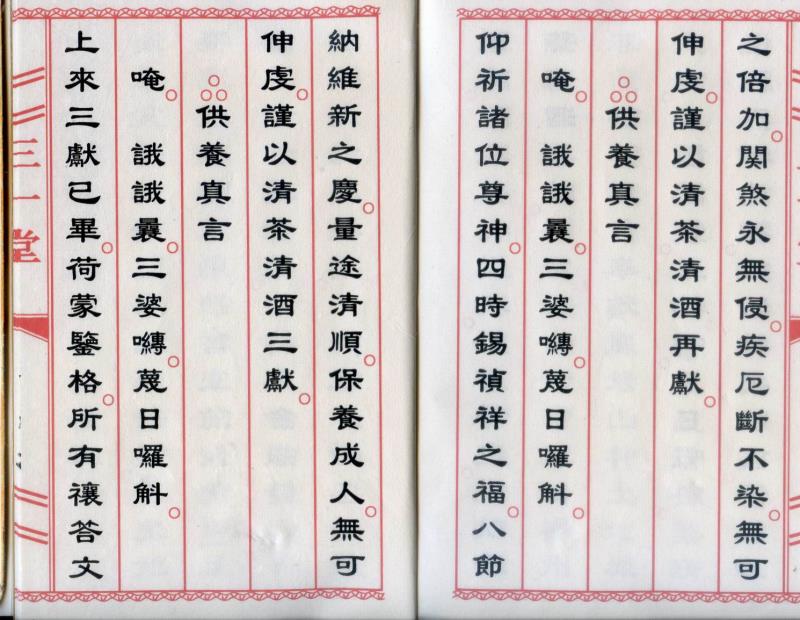 之倍加。關煞永無侵。疾厄斷不染。無可
伸虔。謹以清茶清酒再獻。
供養真言
唵。誐誐曩。三婆嚩。蔑日囉斛。
仰祈諸位尊神。四時錫禎祥之福。八節
納維新之慶。量途清順。保養成人。無可
伸虔。謹以清茶清酒三獻。
供養真言
唵。誐誐曩。三婆嚩。蔑日囉斛。
上來三獻已畢。荷蒙鑒格。所有禳答文
三一堂